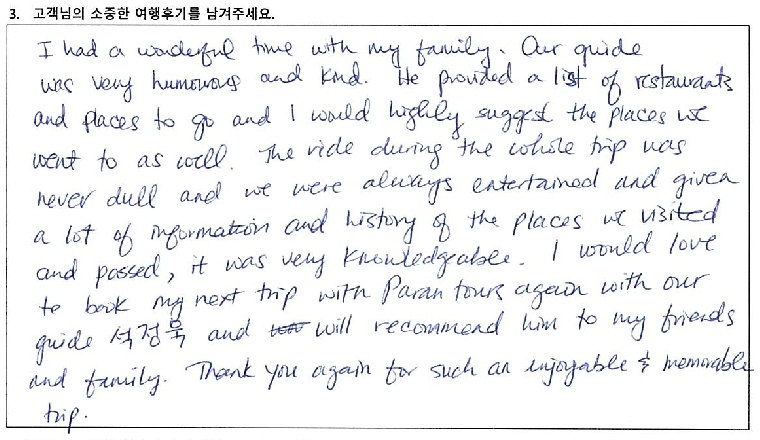 3. 고객님의 소중한 여행후기를 남겨주세요.
I had a wonderful time with my family. Our guide
was very humorous and kind. He provided a list of restaurants
and places to go and I would highly suggest the places we
went to as well. The ride during the whole trip was
never dull and we were always entertained and given
a lot of information and history of the places we visited
and passed, it was very knowledgeable. I would love
to book my next trip with Paran tours again with our
guide 석정욱 and will recommend him to my friends
and family. Thank you again for such an enjoyable & memorable
trip.